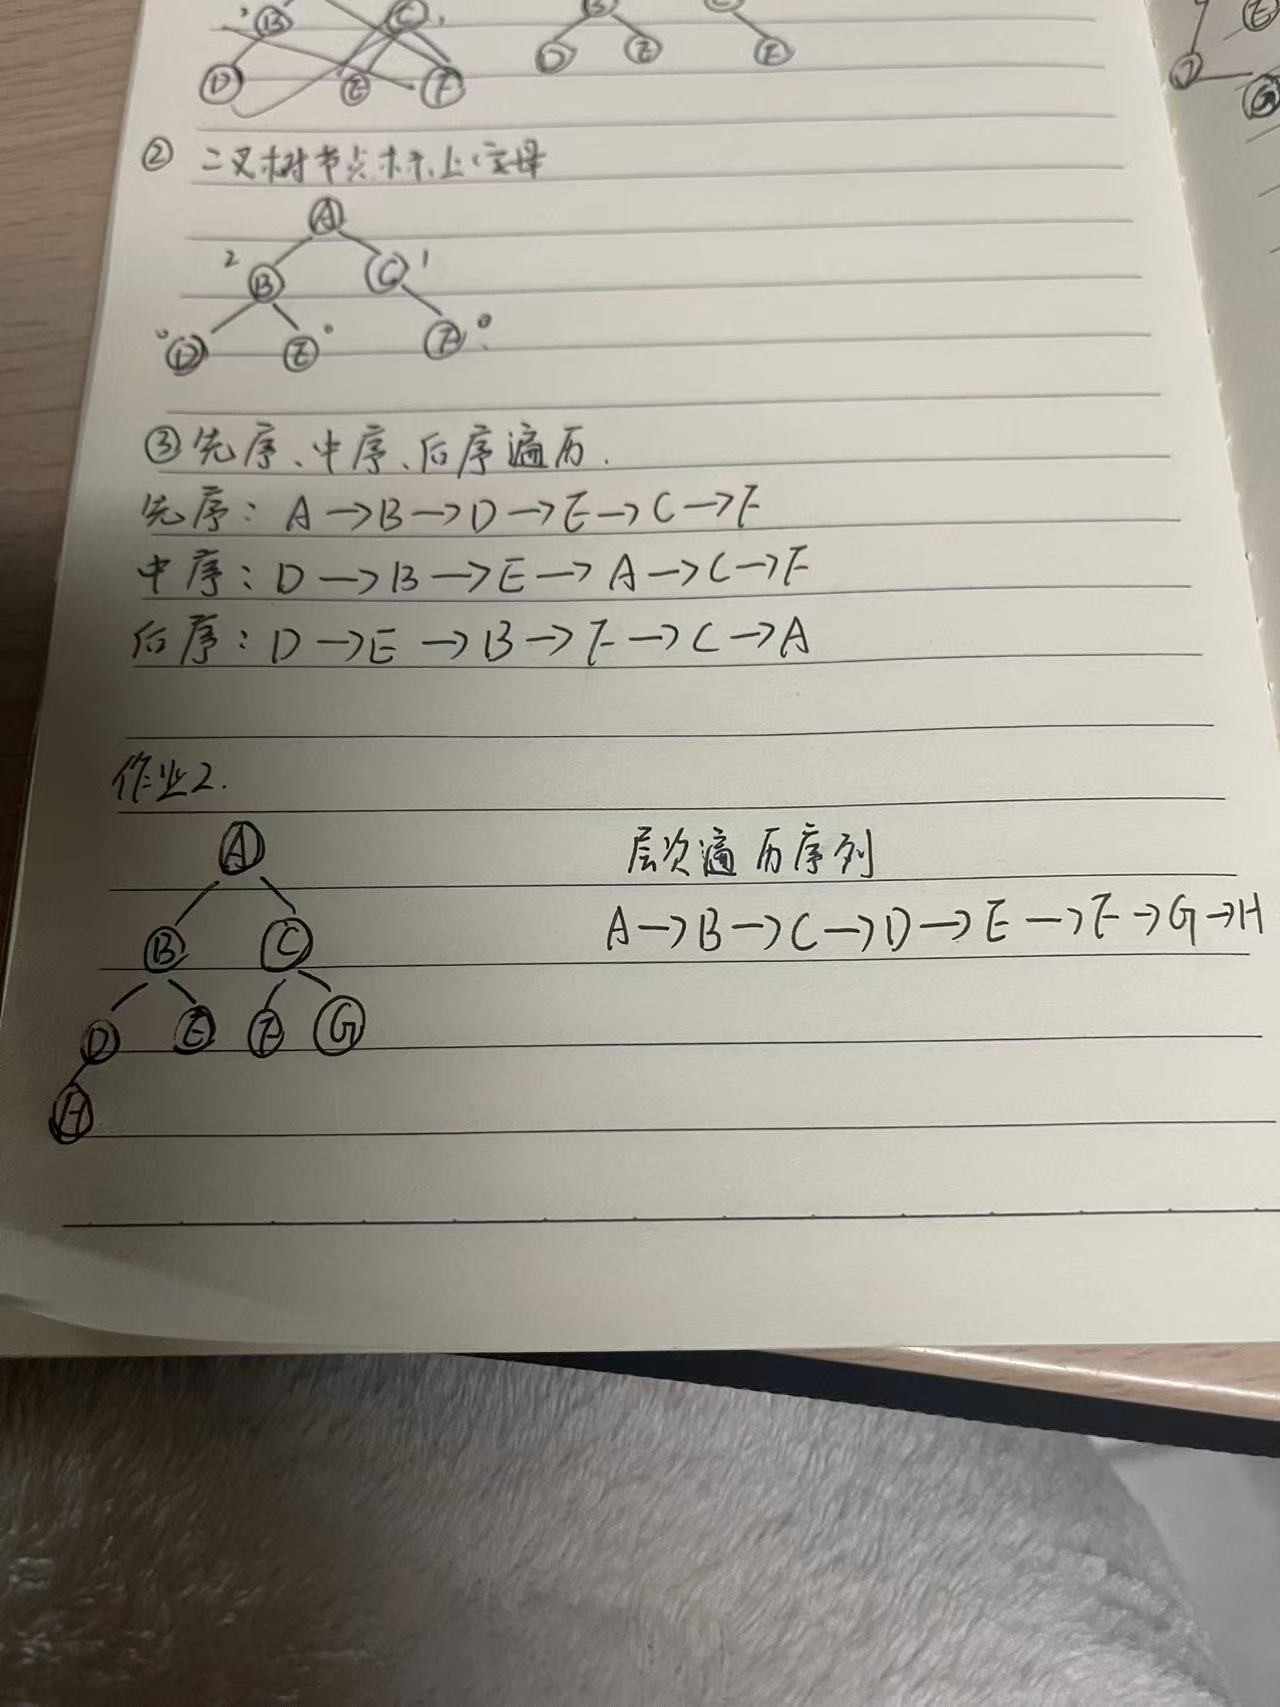 B C
D E F
B C
D E F
E
D
G
② 二叉树节点标上字母
A
2 B C 1
0 D E 0 F 0
③先序、中序、后序遍历.
先序: A→B→D→E→C→F
中序: D→B→E→A→C→F
后序: D→E→B→F→C→A
作业2.
A
层次遍历序列
B C
A→B→C→D→E→F→G→H
D E F G
H